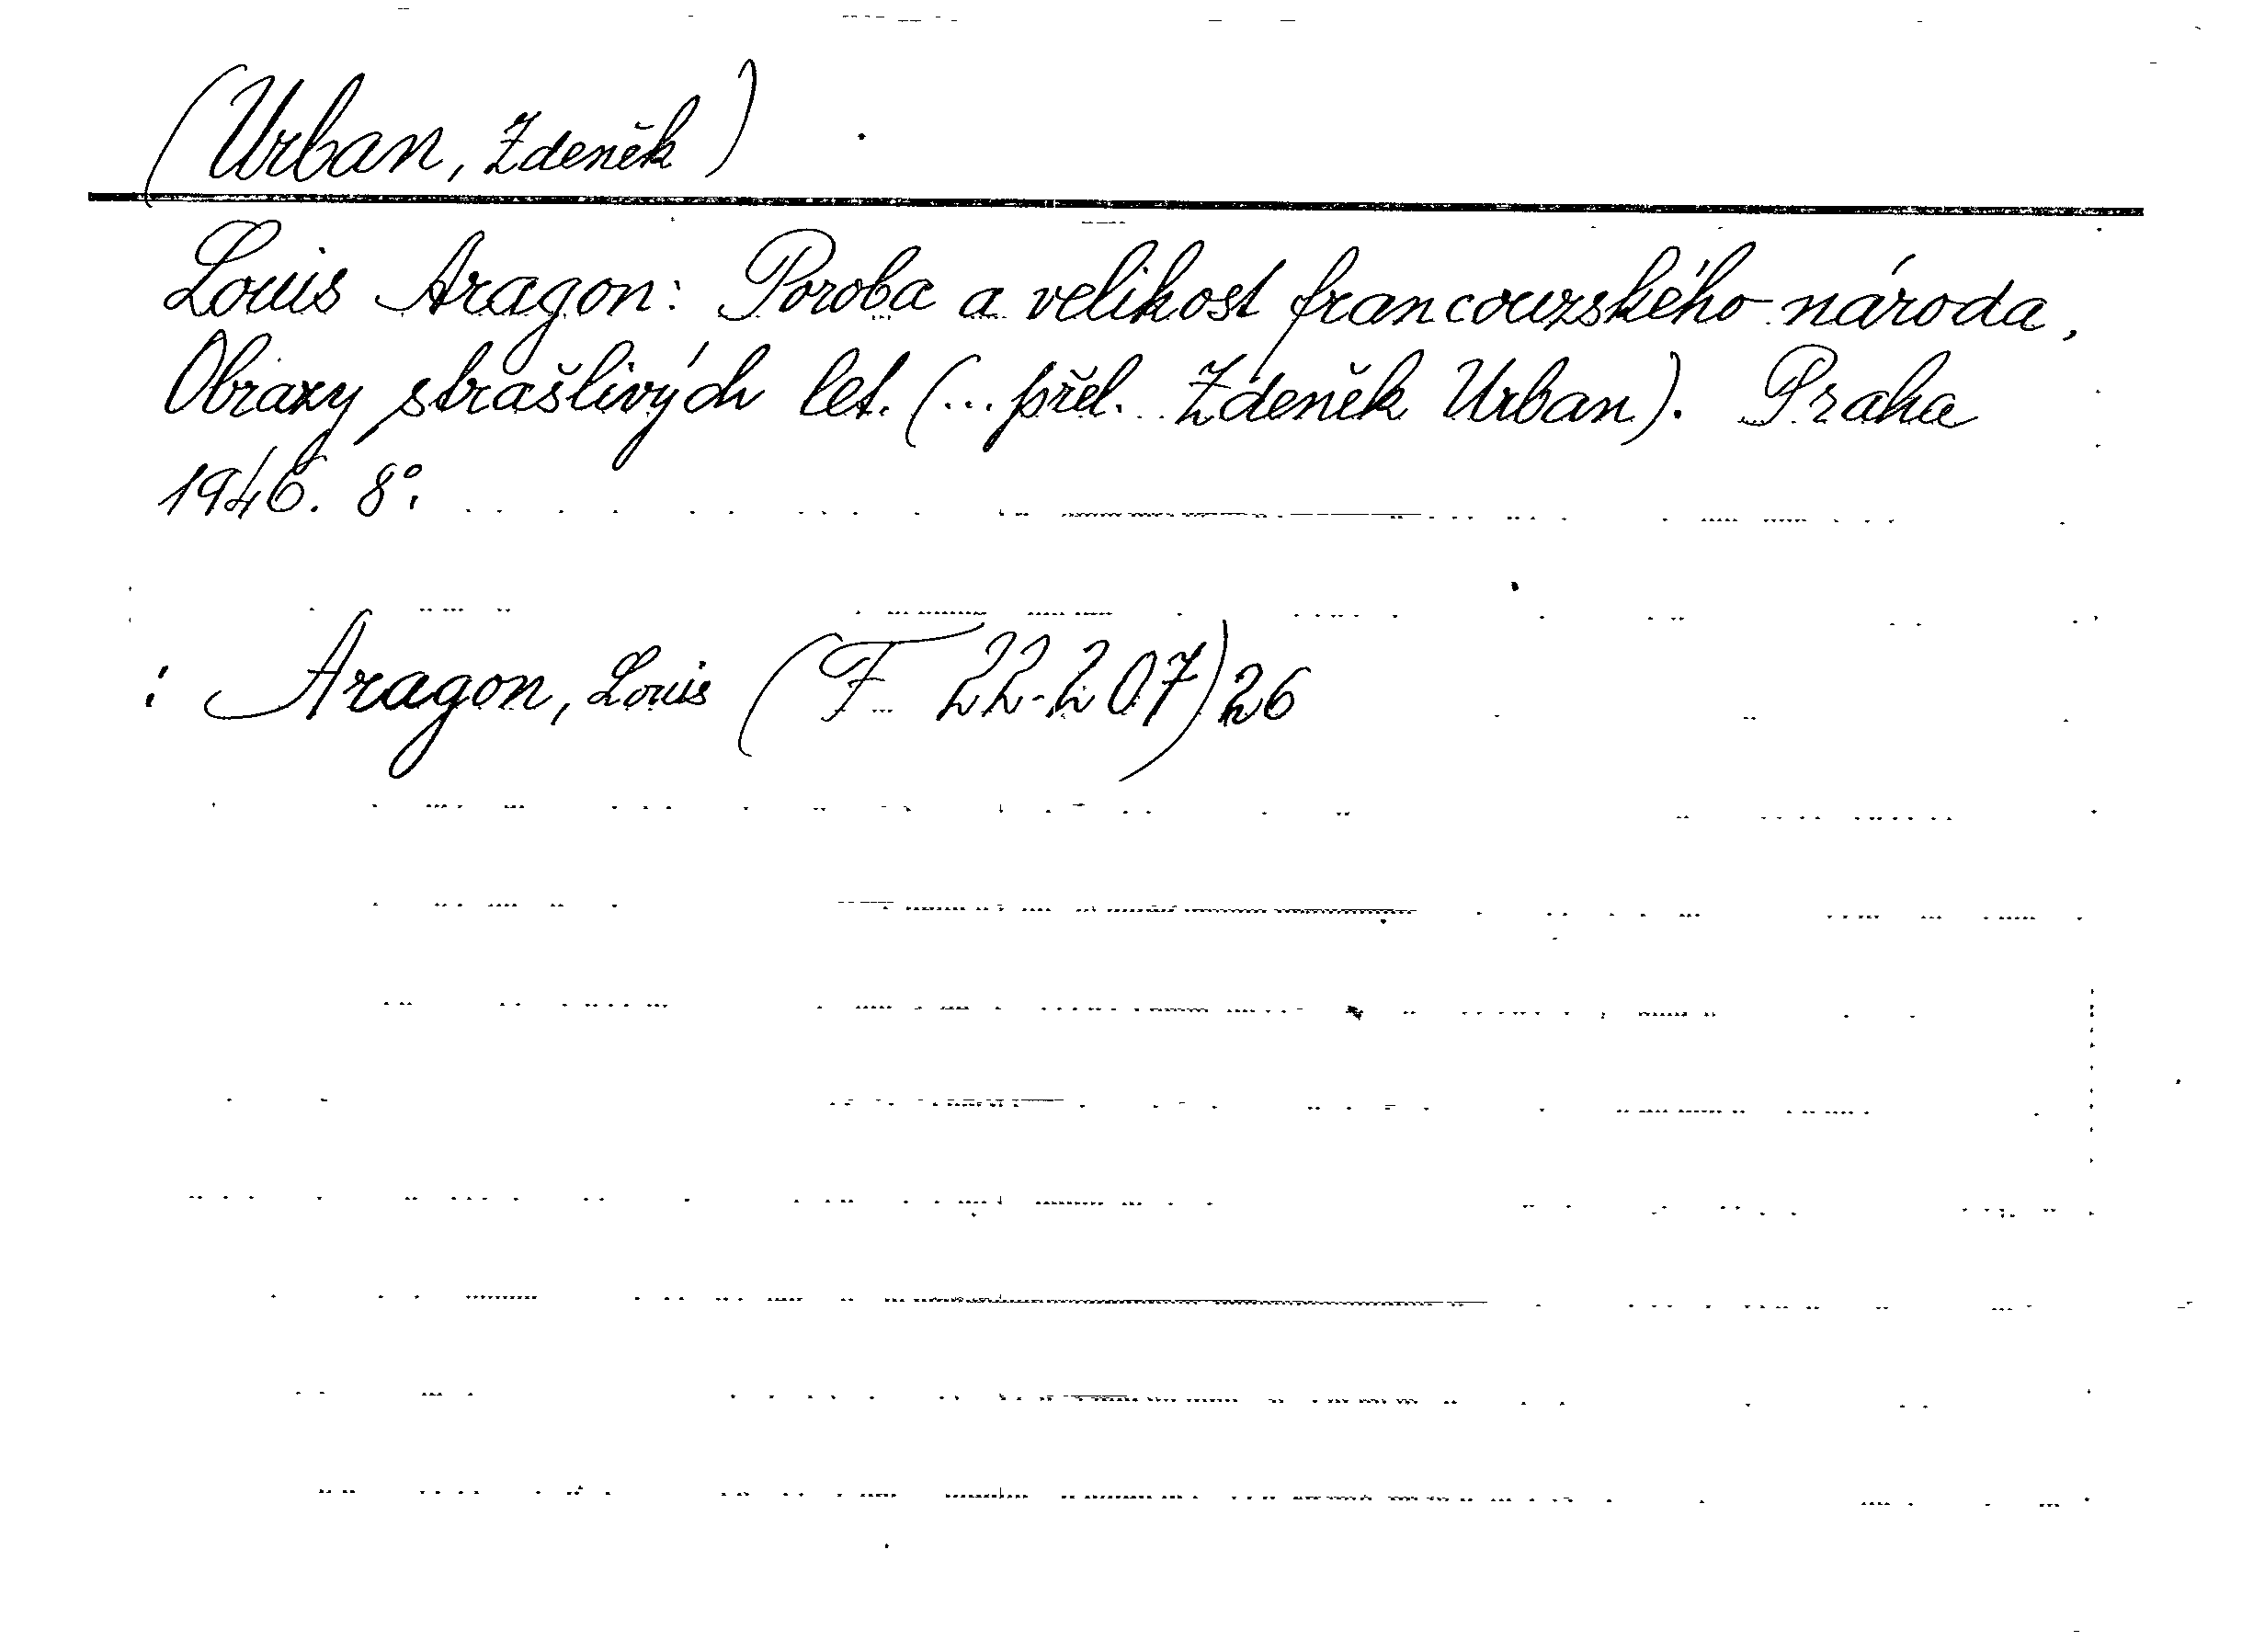 (Urban, Zdeněk)
Louis Aragon: Poroba a velikost francouzského národa,
Obrazy strašlivých let. (... přel. Zdeněk Urban). Praha
1946. 8°.
: Aragon, Louis (F 22.207) 26